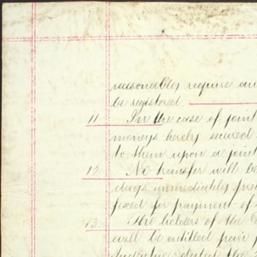 reasonably require and
be registered.
11. In the case of joint
moneys hereby secured
to them upon a joint
12. No transfer will be
days immediately
fixed for payment of
13. The holders of the
will be entitled